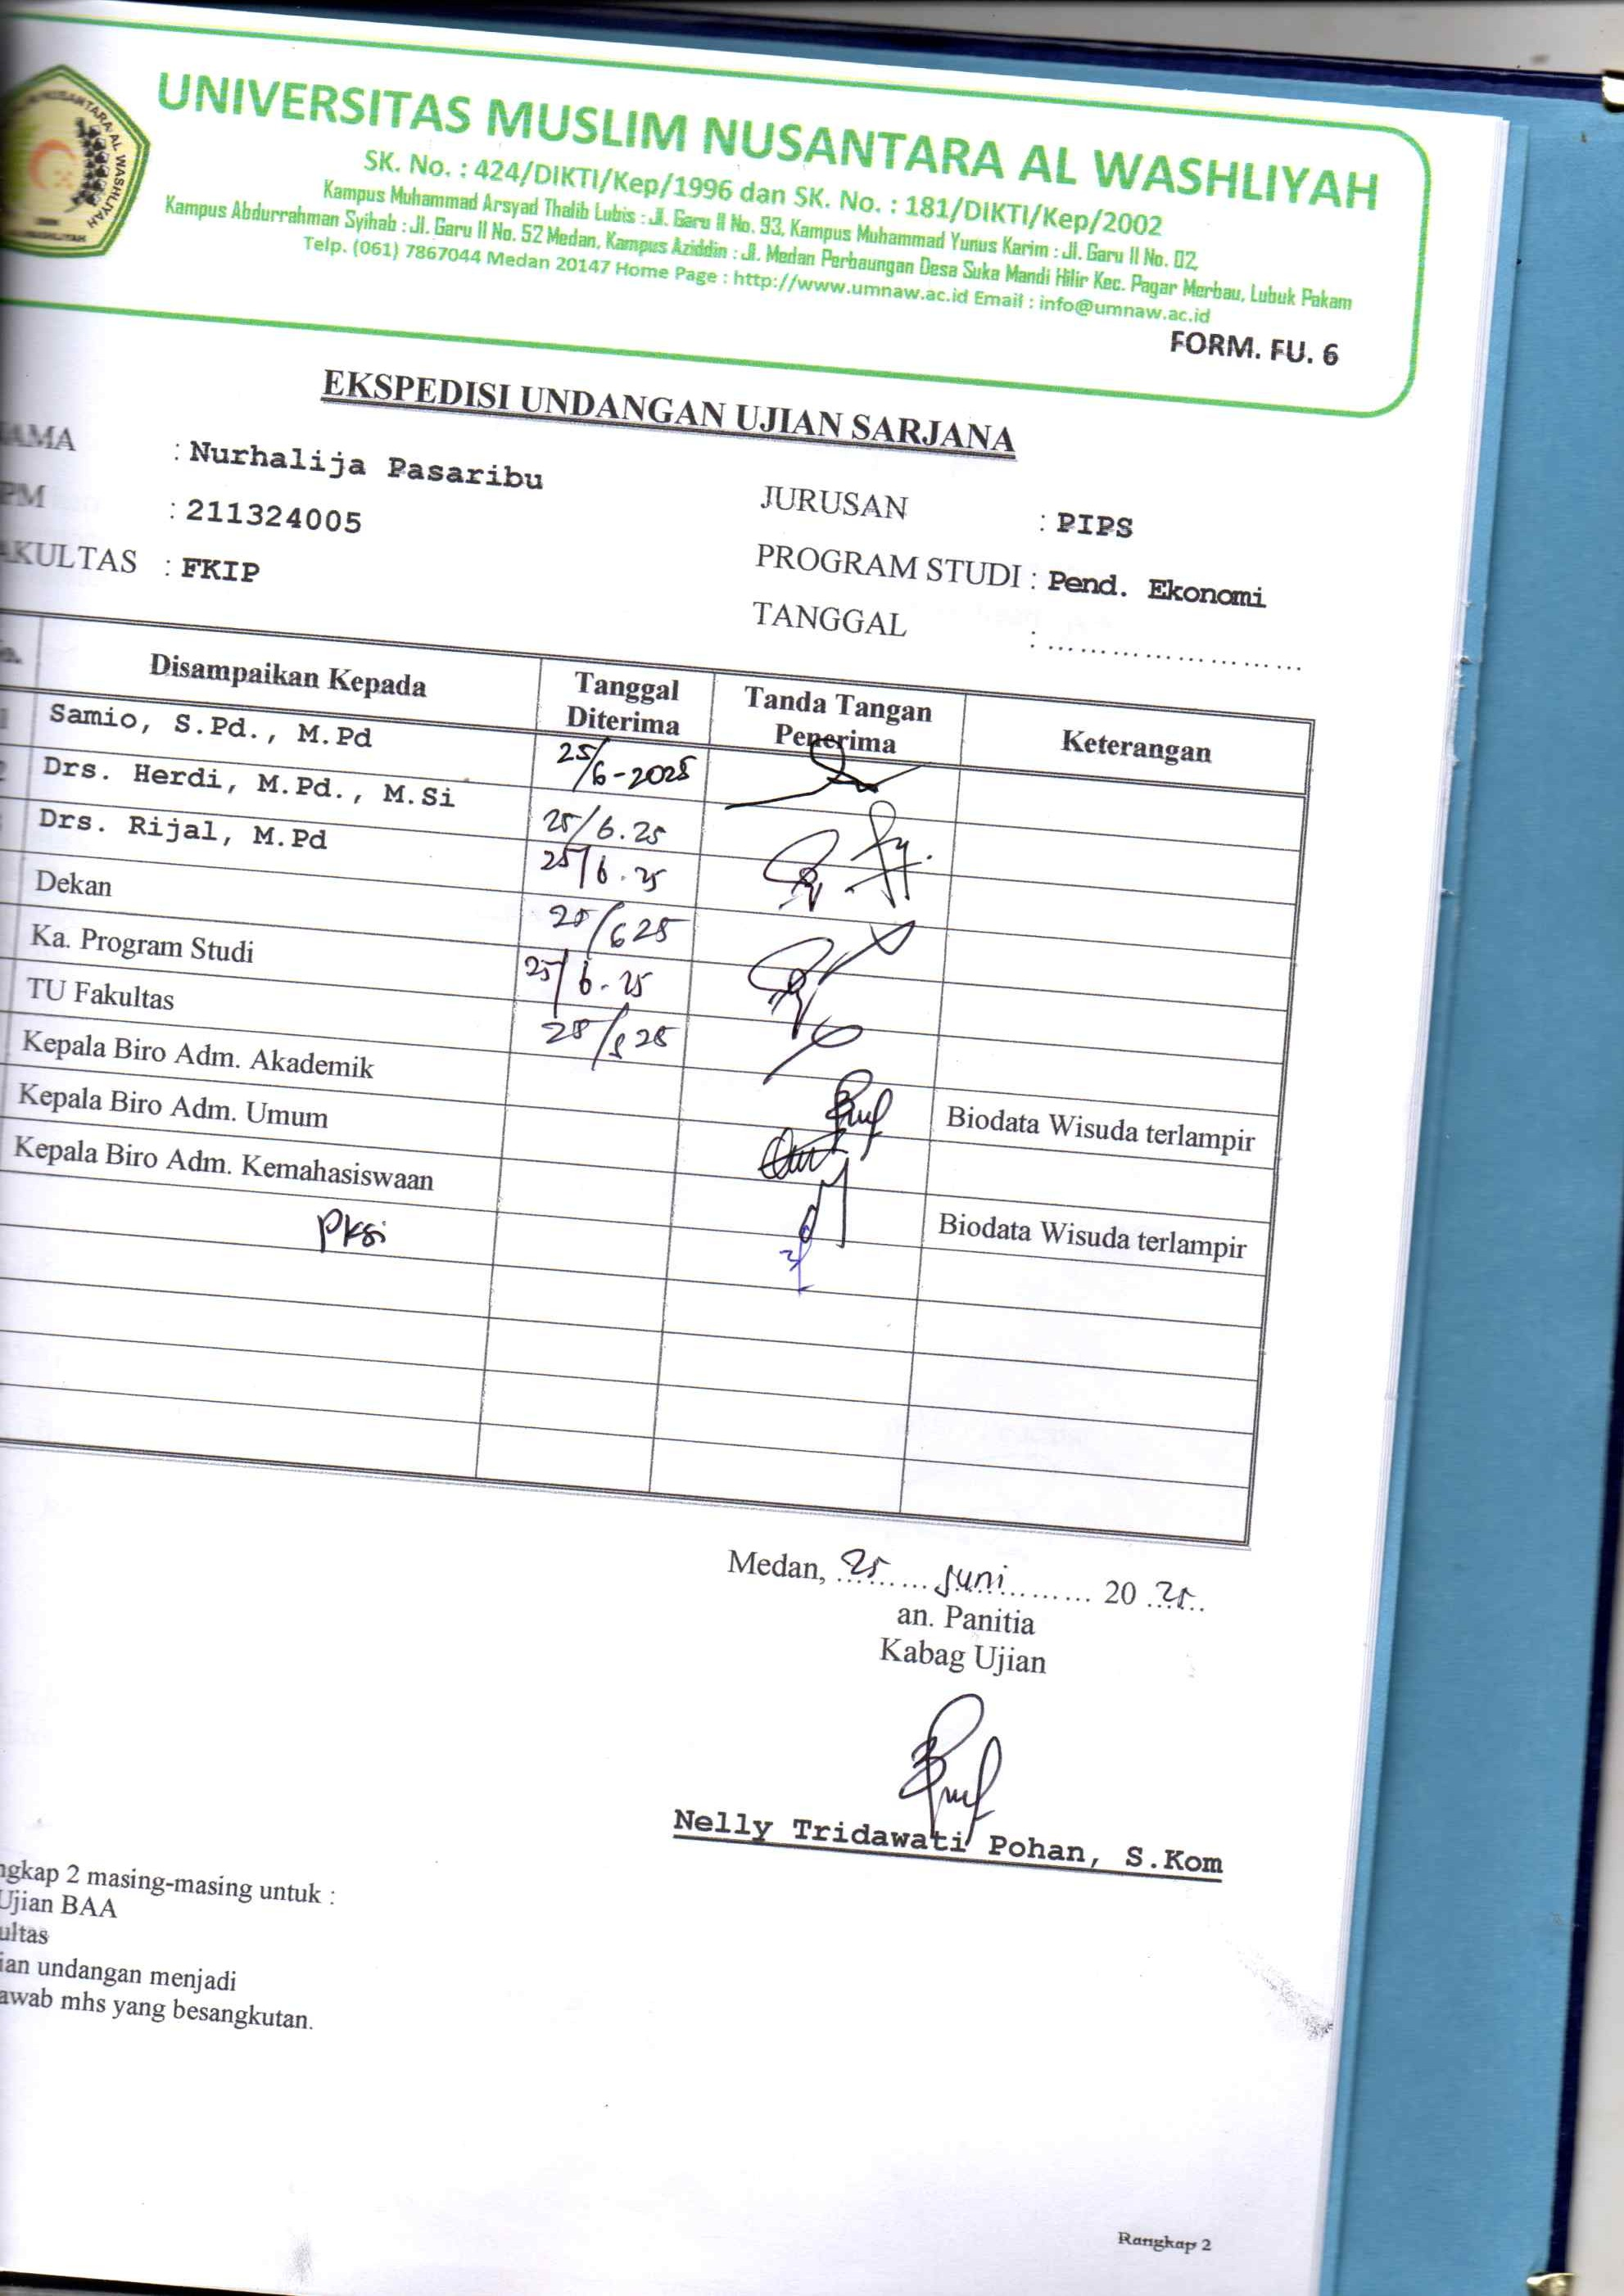 UNIVERSITAS MUSLIM NUSANTARA AL WASHLIYAH
SK. No. : 424/DIKTI/Kep/1996 dan SK. No. : 181/DIKTI/Kep/2002
Kampus Muhammad Arsyad Thalib Lubis : Jl. Garu II No. 93, Kampus Muhammad Yunus Karim : Jl. Garu II No. 02,
Kampus Abdurrahman Syihab : Jl. Garu II No. 52 Medan, Kampus Aziddin : Jl. Medan Perbaungan Desa Suka Mandi Hilir Kec. Pagar Merbau, Lubuk Pakam
Telp. (061) 7867044 Medan 20147 Home Page : http://www.umnaw.ac.id Email : info@umnaw.ac.id
FORM. FU. 6
EKSPEDISI UNDANGAN UJIAN SARJANA
AMA : Nurhalija Pasaribu
PM : 211324005
AKULTAS : FKIP
JURUSAN : PIPS
PROGRAM STUDI : Pend. Ekonomi
TANGGAL : ........................
Disampaikan Kepada Tanggal Diterima Tanda Tangan Penerima Keterangan
Samio, S.Pd., M.Pd 25/6-2025
Drs. Herdi, M.Pd., M.Si 25/6.25
Drs. Rijal, M.Pd 25/6.25
Dekan 25/6 25
Ka. Program Studi 25/6-25
TU Fakultas
Kepala Biro Adm. Akademik Biodata Wisuda terlampir
Kepala Biro Adm. Umum
Kepala Biro Adm. Kemahasiswaan Biodata Wisuda terlampir
PKSi
Medan, 25 Juni 2025
an. Panitia
Kabag Ujian
Nelly Tridawati Pohan, S.Kom
ngkap 2 masing-masing untuk :
Ujian BAA
ultas
ian undangan menjadi
awab mhs yang besangkutan.
Rangkap 2